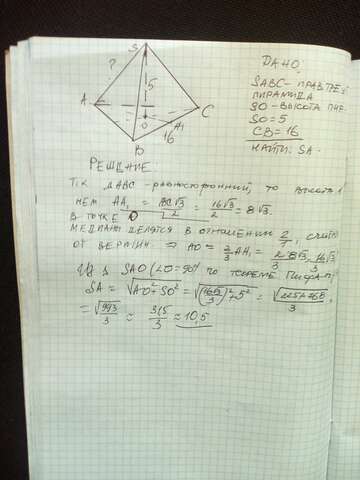 S
?
5
A
C
O
A₁
16
B
ДАНО
SABC - ПРАВ ТРЕУГ
ПИРАМИДА
SO - ВЫСОТА ПИР.
SO = 5
CB = 16
НАЙТИ: SA
РЕШЕНИЕ:
Т.К ΔABC - РАВНОСТОРОННИЙ, ТО ВЫСОТА В
НЕМ AA₁ = BC√3/2 = 16√3/2 = 8√3.
В ТОЧКЕ O
МЕДИАНЫ ДЕЛЯТСЯ В ОТНОШЕНИИ 2/1,
ОТ ВЕРШИН. ⇒ AO = 2/3 AH₁ = 2·8√3/3 = 16√3/3
ИЗ Δ SAO (∠O = 90° ПО ТЕОРЕМЕ ПИФАГ.
SA = √AO²+SO² = √(16√3/3)²+5² =
= √993/3 ≈ 31,5/3 ≈ 10,5